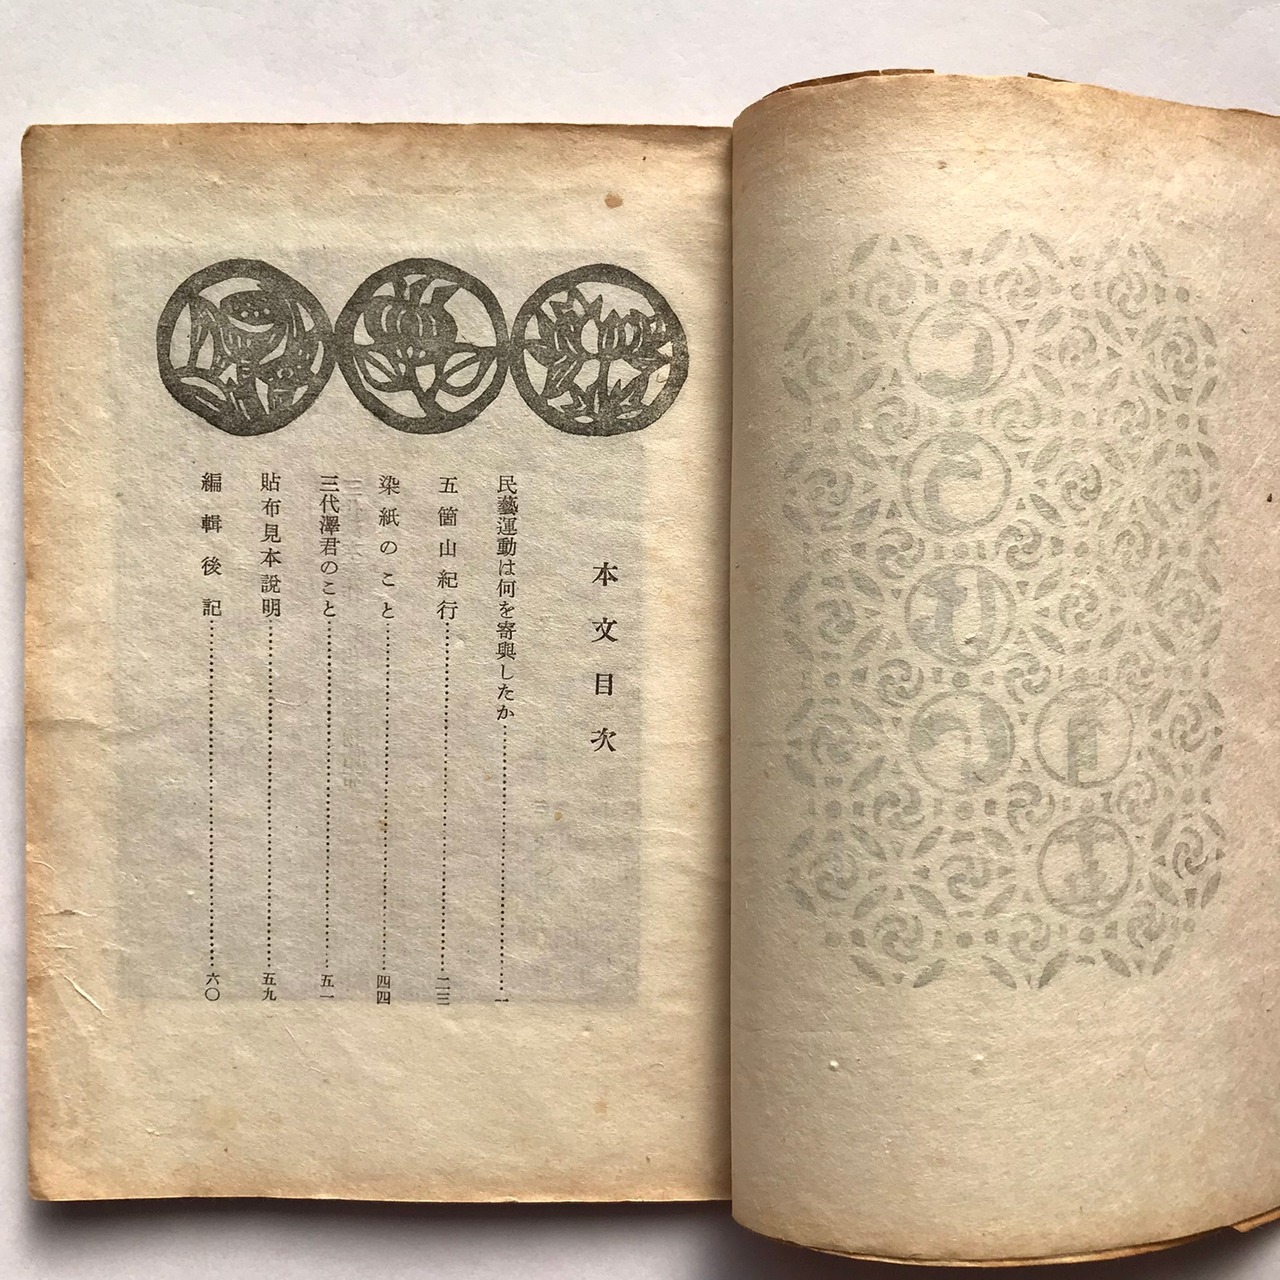 本文目次
民藝運動は何を寄與したか……一
五箇山紀行……二三
染紙のこと……四四
三代澤君のこと……五一
貼布見本說明……五九
編輯後記……六〇